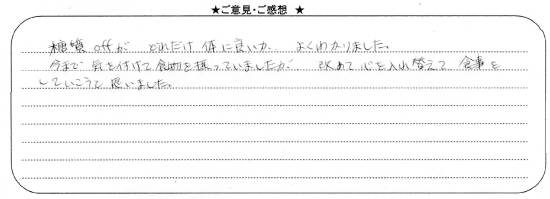 ★ご意見・ご感想 ★
糖質 offが どれだけ 体に良いか よくわかりました。
今まで 気を付けて食事を摂っていましたが 改めて心を入れ替えて 食事を
していこうと思いました。